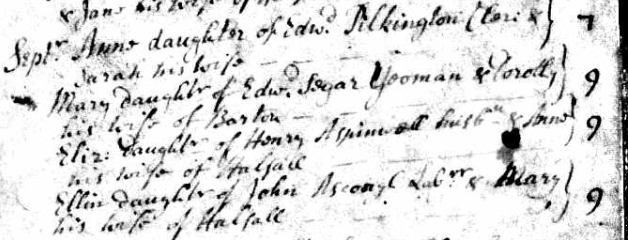 & Jane his wife of
Septr Anne daughter of Edwd Pilkington Cler: & } 7
Sarah his wife
Mary daughtr of Edwd Segar Yeoman & Dorothy } 9
his wife of Barton
Eliz: daughter of Henry Aspinwell husbn & Anne } 9
his wife of Halsall
Ellin daughtr of John Labrr & Mary } 9
his wife of Halsall